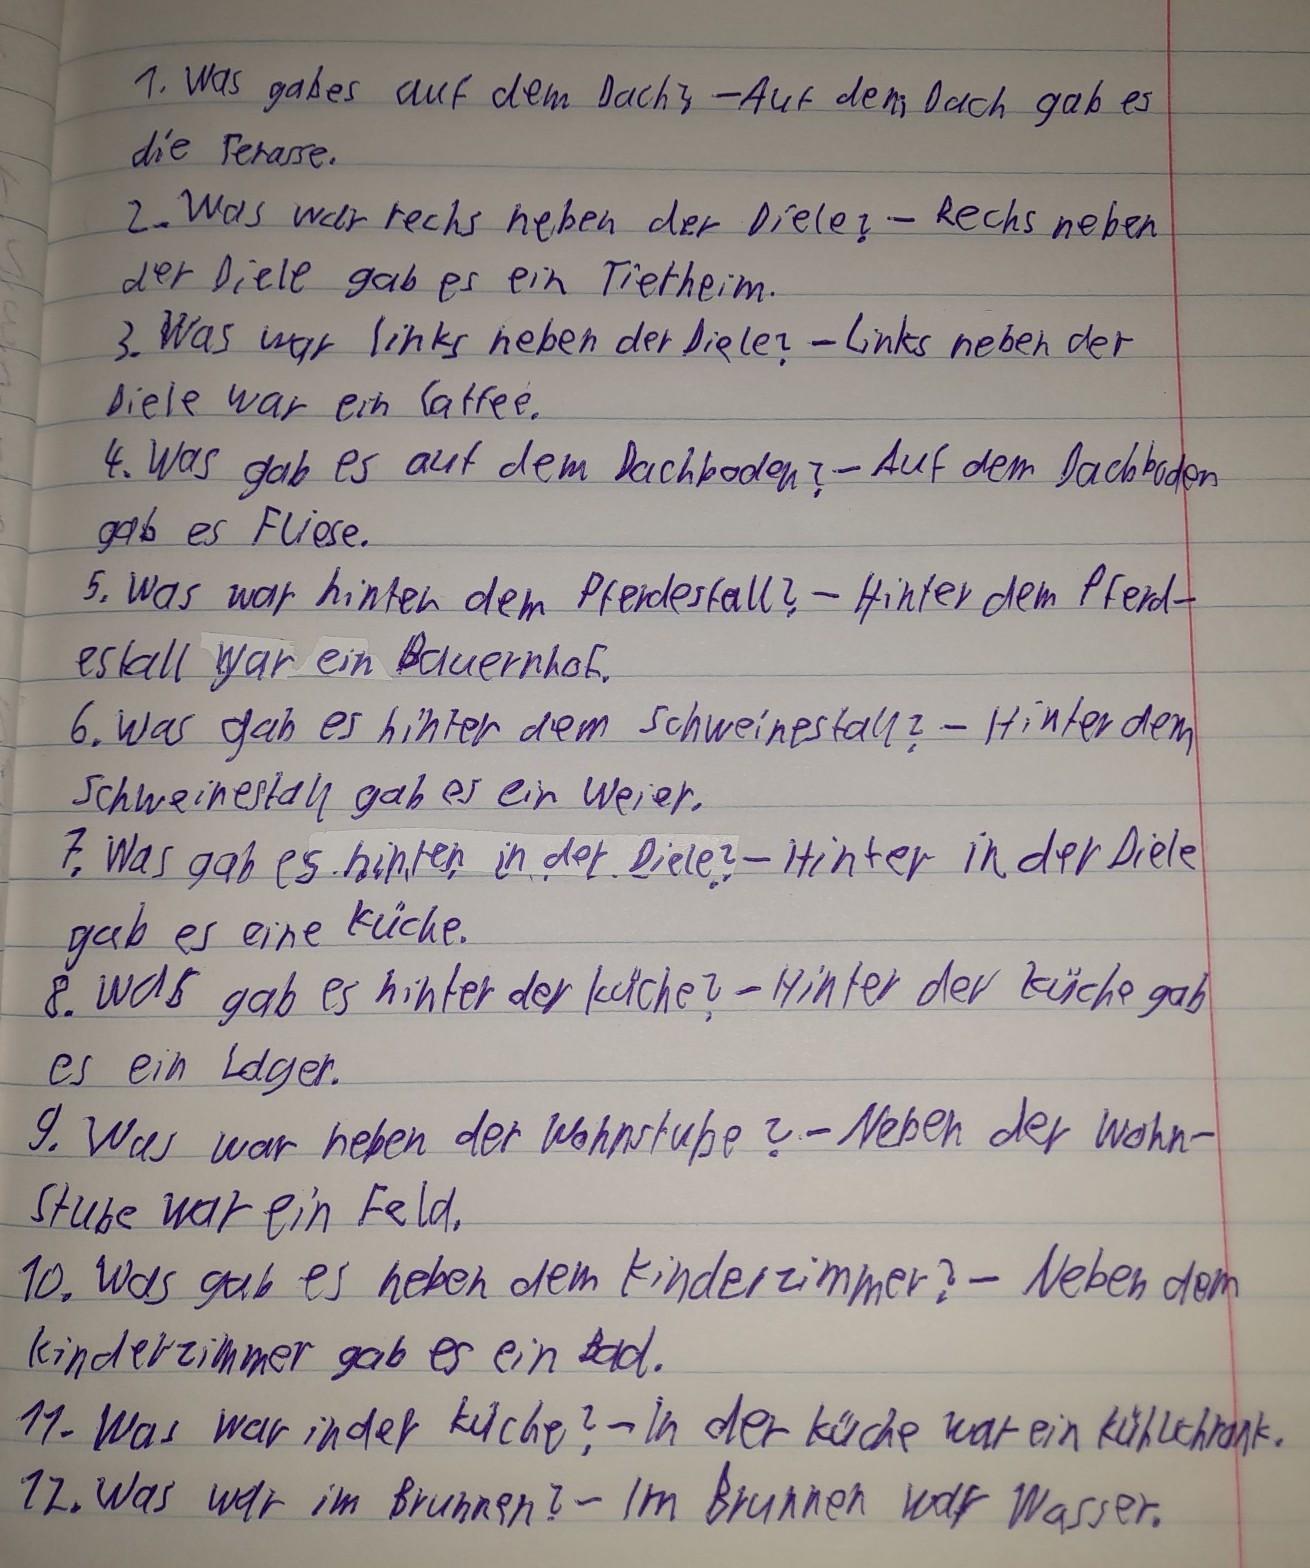 1. Was gab es auf dem Dach? – Auf dem Dach gab es
die Terasse.
2. Was war rechs neben der Diele? – Rechs neben
der Diele gab es ein Tierheim.
3. Was war links neben der Diele? – Links neben der
Diele war ein Caffee.
4. Was gab es auf dem Dachboden? – Auf dem Dachboden
gab es Fliese.
5. Was war hinten dem Pferdestall? – Hinter dem Pferd-
estall war ein Bauernhof.
6. Was gab es hinter dem Schweinestall? – Hinter dem
Schweinestall gab es ein Weier.
7. Was gab es hinten in der Diele? – Hinter in der Diele
gab es eine Küche.
8. Was gab es hinter der Küche? – Hinter der Küche gab
es ein Lager.
9. Was war neben der Wohnstube? – Neben der Wohn-
stube war ein Feld.
10. Was gab es neben dem Kinderzimmer? – Neben dem
Kinderzimmer gab es ein Bad.
11. Was war in der Küche? – In der Küche war ein Kühlchrank.
12. Was war im Brunnen? – Im Brunnen war Wasser.